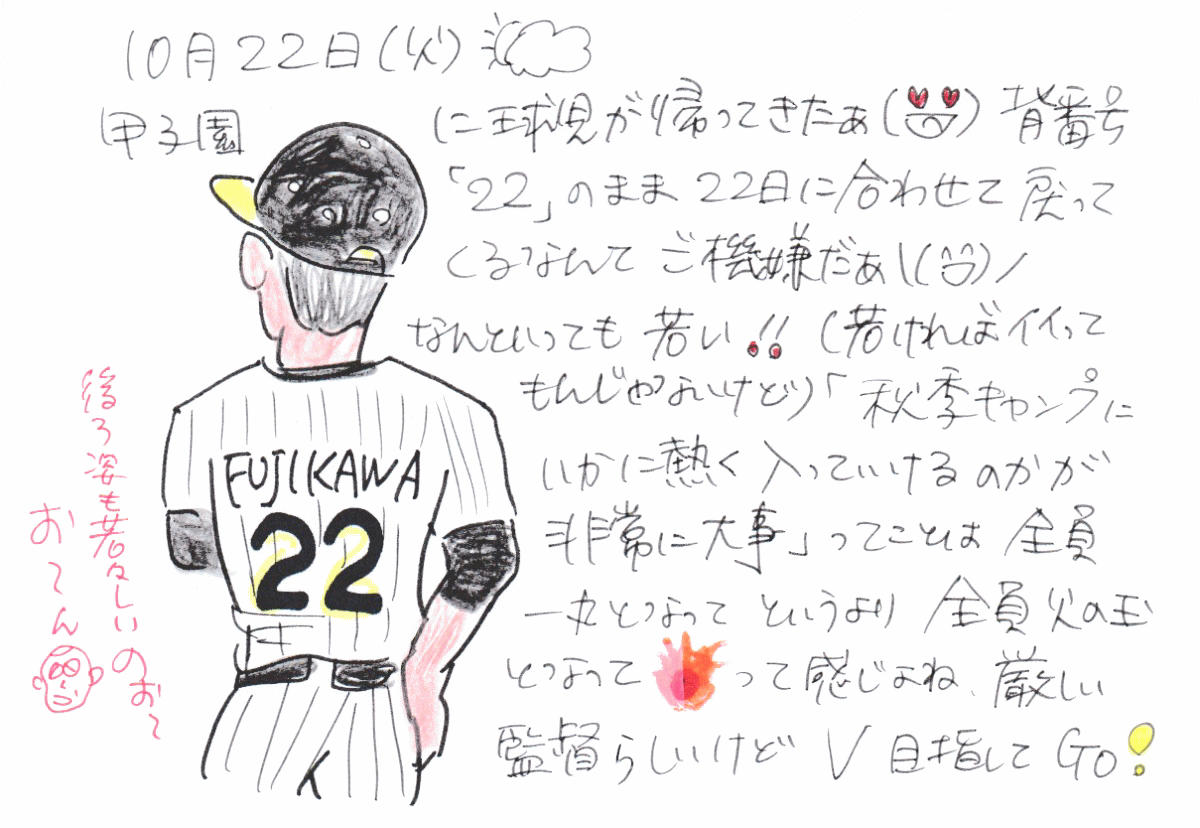 10月22日(火)
甲子園に球児が帰ってきたぁ( )背番号
「22」のまま22日に合わせて戻って
くるなんてご機嫌だぁ\( )/
なんといっても若い!!(若ければイイって
もんじゃないけど)「秋季キャンプに
いかに熱く入っていけるのかが
非常に大事」ってことは全員
一丸となってというより全員火の玉
となって って感じよね、厳しい
監督らしいけどV目指してGo!
FUJIKAWA
22
後ろ姿も若々しいのぉ〜
お〜ん